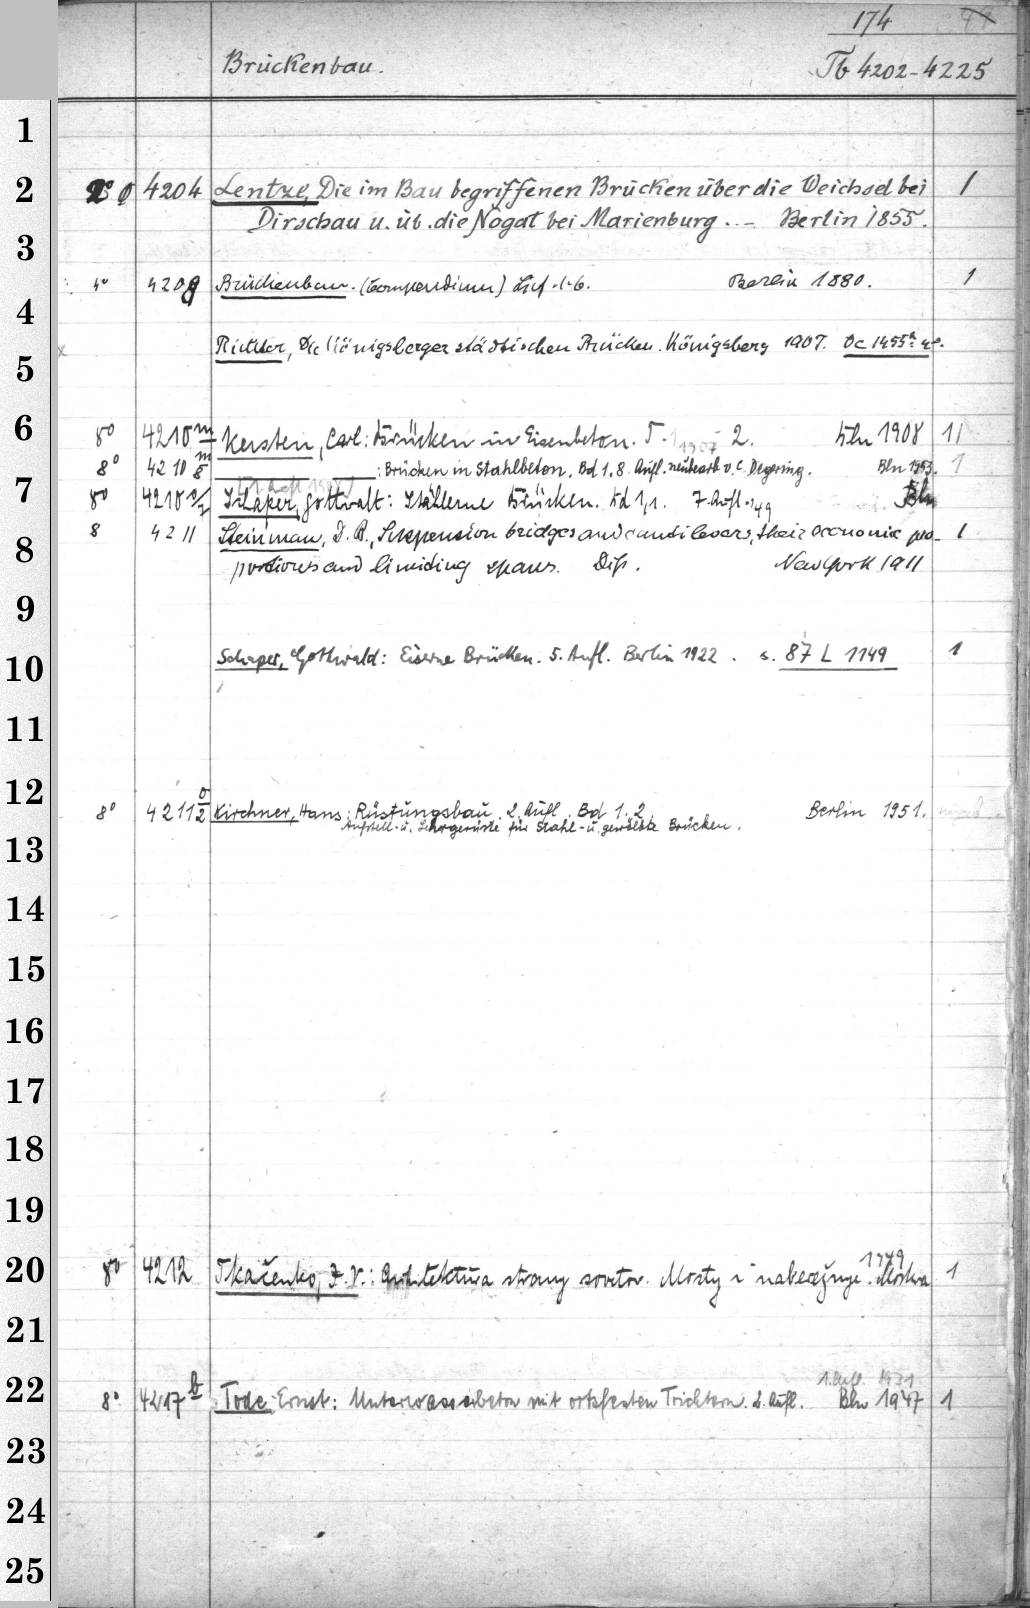 174
Brückenbau. Tb 4202-4225
1
2 2° 4204 Lentze, Die im Bau begriffenen Brücken über die Weichsel bei 1
Dirschau u. üb. die Nogat bei Marienburg .. - Berlin 1855.
3
4° 4209 Brückenbau. (Compendium) Lief. 1-6. Berlin 1880. 1
4
x Richter, Die Königsberger städtischen Brücken. Königsberg 1907. Oc 1455 4°.
5
6 8° 4210 m Kersten, Carl: Brücken in Eisenbeton. T. 1 1907 2. Bln 1908 11
8° 4210 m/5 : Brücken in Stahlbeton. Bd 1. 8. Aufl. neubearb. v. C. Degering. Bln 1953. 1
7 8° 4210 Schaper, Gottwalt: Stählerne Brücken. Bd 1,1. 7. Aufl. 1949 Bln
8 8 4211 Steinman, D. B., Suspension bridges and cantilevers, their economic pro- 1
portions and limiding spans. Diss. New York 1911
9
10 Schaper, Gottwald: Eiserne Brücken. 5. Aufl. Berlin 1922. s. 87 L 1149 1
11
12 8° 4211 o/2 Kirchner, Hans: Rüstungsbau. 2. Aufl. Bd 1. 2 Berlin 1951.
Aufstell- u. Lehrgerüste für Stahl- u. gewölbte Brücken.
13
14
15
16
17
18
19
1949
20 8° 4212 Tkačenko, F. V.: Architektura strany sovetov. Mosty i naberežnye. Moskva 1
21
1. Aufl. 1931
22 8° 4217 b Tode, Ernst: Unterwasserbeton mit ortsfesten Trichtern. 2. Aufl. Bln 1947 1
23
24
25